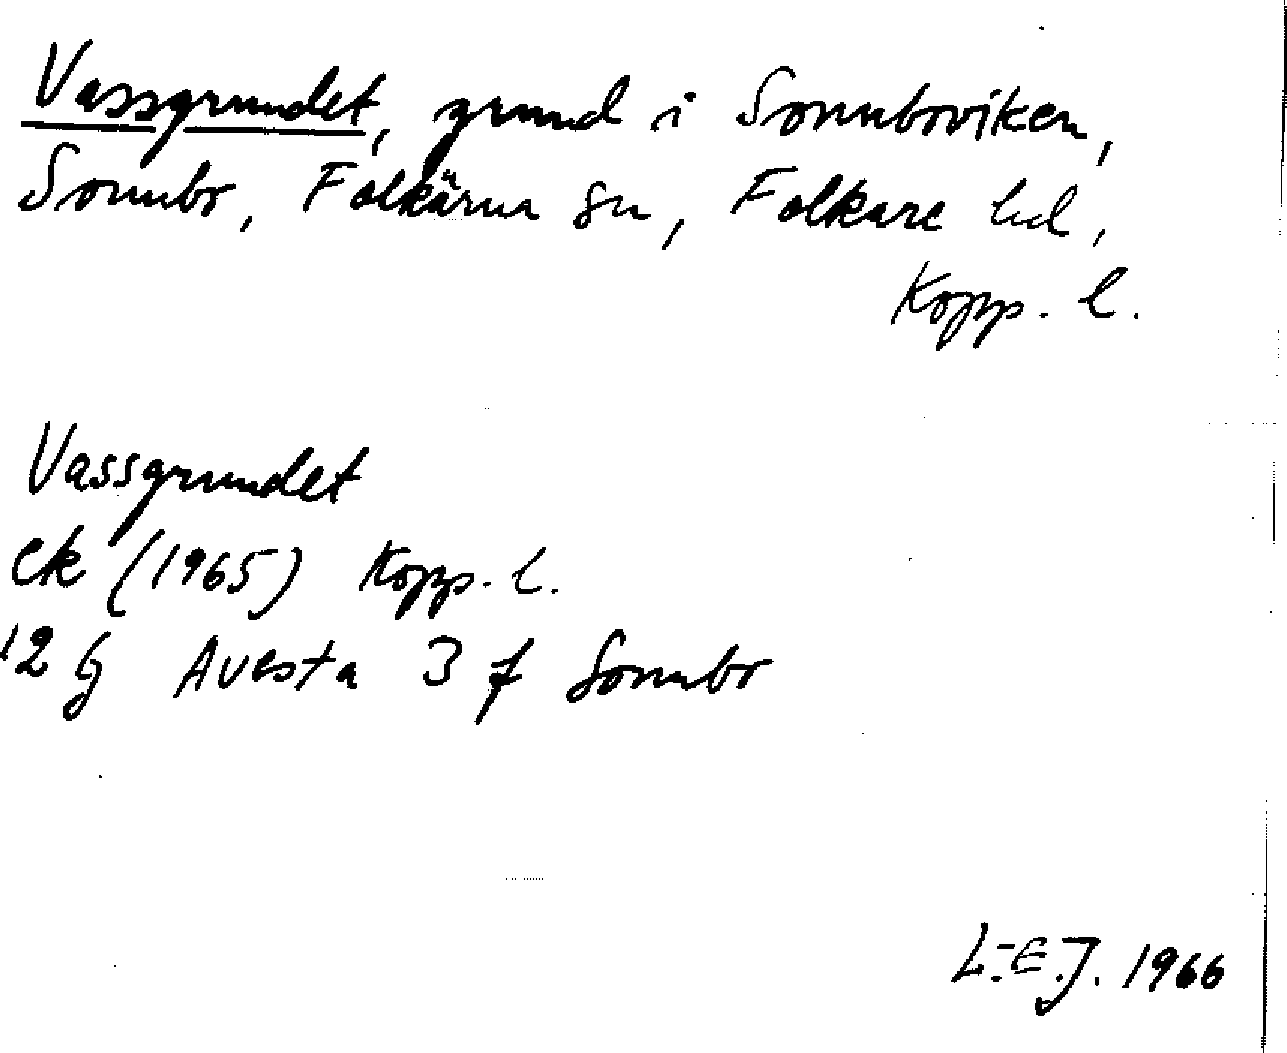 Vassgrundet, grund i Sonnboviken,
Sonnbo, Folkärna sn, Folkare hd,
Kopp. l.
Vassgrundet
ek (1965) Kopp. l.
12 G Avesta 3 f Sonnbo
L.-E.J. 1966